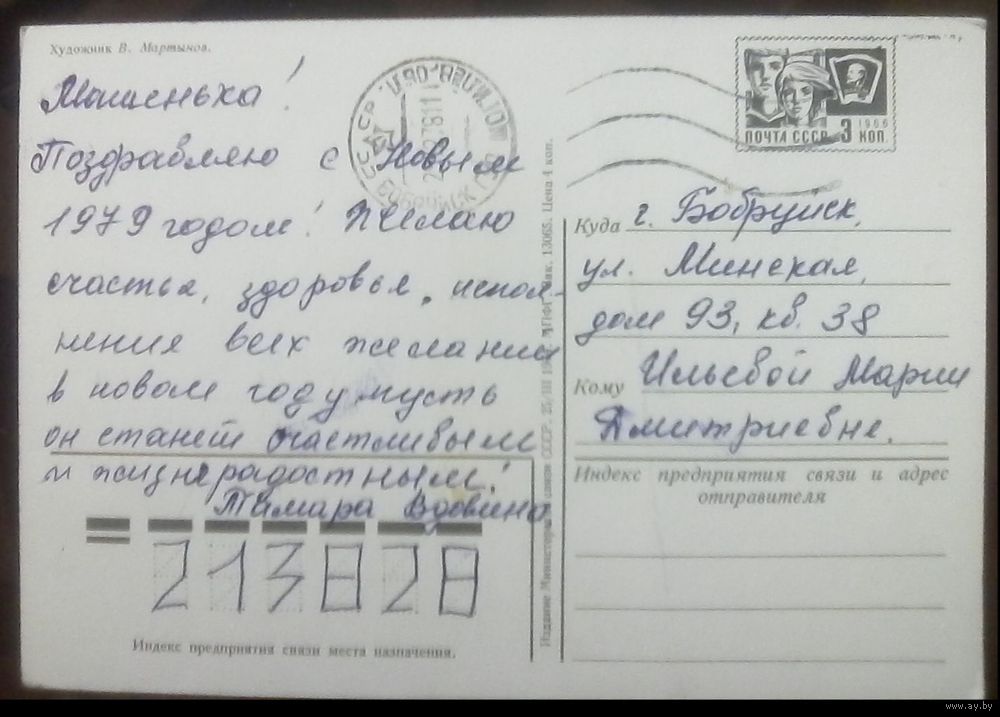 Художник В. Мартынов.
Машенька!
Поздравляю с Новым
1979 годом! Желаю
счастья, здоровья, испол-
нения всех желаний
в новом году пусть
он станет счастливым
и жизнерадостным!
Тамара Вдовина
213828
Индекс предприятия связи места назначения.
Издание Министерства связи СССР. 25/III 1978. Цена 4 коп.
СССР
БОБРУЙСК
ПОЧТА СССР 3 КОП
1966
Куда г. Бобруйск,
ул. Минская,
дом 93, кв. 38
Кому Ильевой Марии
Дмитриевне.
Индекс предприятия связи и адрес
отправителя
www.ay.by